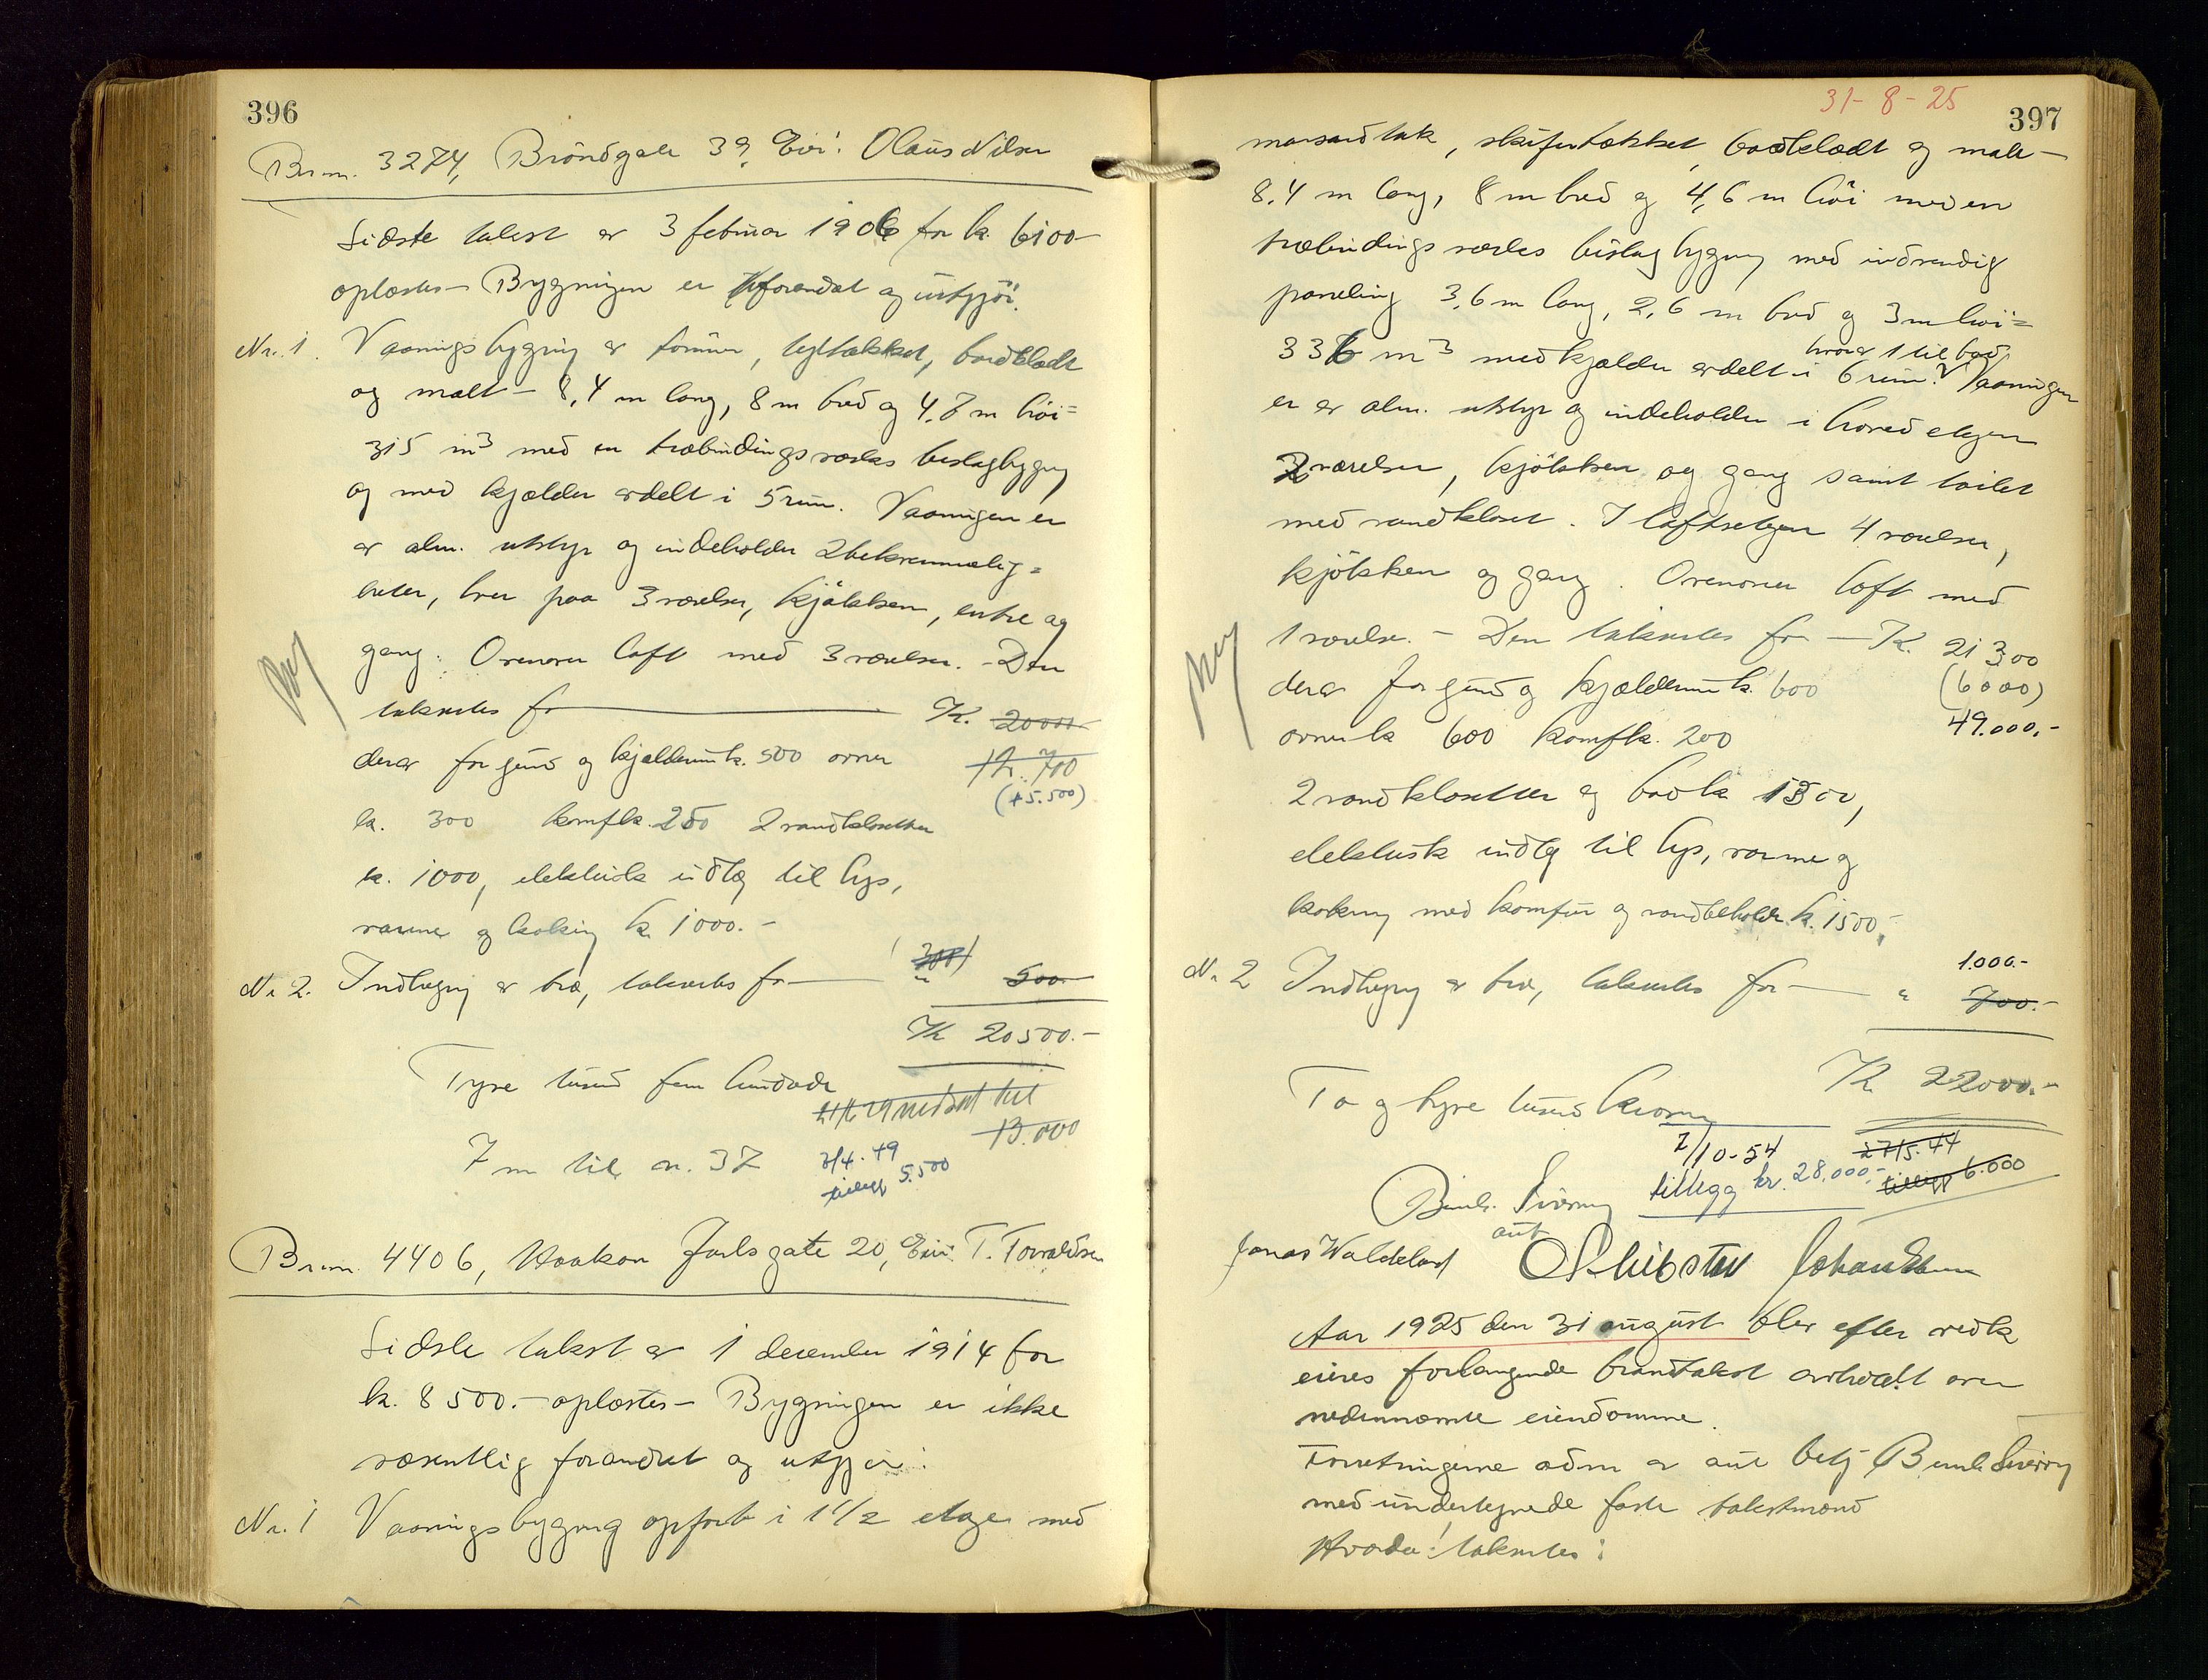 396
Br.nr. 3274, Bröndgate 39, Eier: Olaus Nilsen
Sidste takst er 3 februar 1906 for kr. 6100-
oplæstes- Bygningen er forandret og utgjör:
Nr. 1. Vaaningsbygning av tømmer, teltækket, bordklædt
og malt - 8,4 m lang, 8 m bred og 4,7 m höi=
315 m3 med en træbindingsværks beslagbygning
og med kjælder avdelt i 5 rum. Vaaningen er
av alm. utstyr og indeholder 2 bekvemmelig=
heter, hver paa 3 værelser, kjökken, entre og
gang. Ovenover loft med 3 værelser. - Den
takseres for K. 20000
derav for grund og kjælderrum k. 500 ovner
12.700
(+5.500)
k. 300 komf. k. 250 2 vandklosetter
k. 1000, elektrisk indlæg til lys,
varme og koking k. 1000.-
(300)
Nr 2. Indhegning av træ, takseres for " 500
K 20500.-
Tyve tusind fem hundrede
29 nedsat til
13.000
7 m til nr. 37
3/4.49
tillegg 5.500
Br.nr. 4406, Haakon Jarlsgate 20, Eier: T. Torvaldsen
Sidste takst er 1 december 1914 for
k. 8500.- oplæstes- Bygningen er ikke
væsentlig forandret og utgjör:
Nr. 1 Vaaningsbygning opført i 1 1/2 etage med
31-8-25
397
mansardtak, skifertækket, bordklædt og malt-
8,4 m lang, 8 m bred og 4,6 m höi med en
træbindingsværks bislagbygning med indvendig
paneling 3,6 m lang, 2,6 m bred og 3 m höi=
336 m3 med kjælder avdelt i 6 rum. Vaaningen
hvorav 1 til bad
er av alm. utstyr og indeholder i hovedetagen
2 værelser, kjökken og gang samt toilet
med vandkloset. I loftsetagen 4 værelser,
kjökken og gang. Ovenover loft med
1 værelse. - Den takseres for - K. 21300
derav for grund og kjælderrum k. 600
(6000)
ovner k 600 komf k. 200
49.000,-
2 vandklosetter og bad k 1300,
elektrisk indlæg til lys, varme og
koking med komfur og vandbeholder k. 1500,-
1.000.-
Nr 2 Indhegning av træ, takseres for " 700.-
K 22000.-
To og tyve tusind kroner
1/10-54
27/5.44
tillegg kr. 28.000,-
tillegg 6.000
Bernh. Sværen
aut
Jonas Waldeland
Aar 1925 den 31 august blev efter vedk
eieres forlangende brandtakst avholdt over
nedennævnte eiendomme.
Forretningerne adm av aut betj Bernh Sværen
med undertegnede faste takstmænd
Hvorda! takseres: